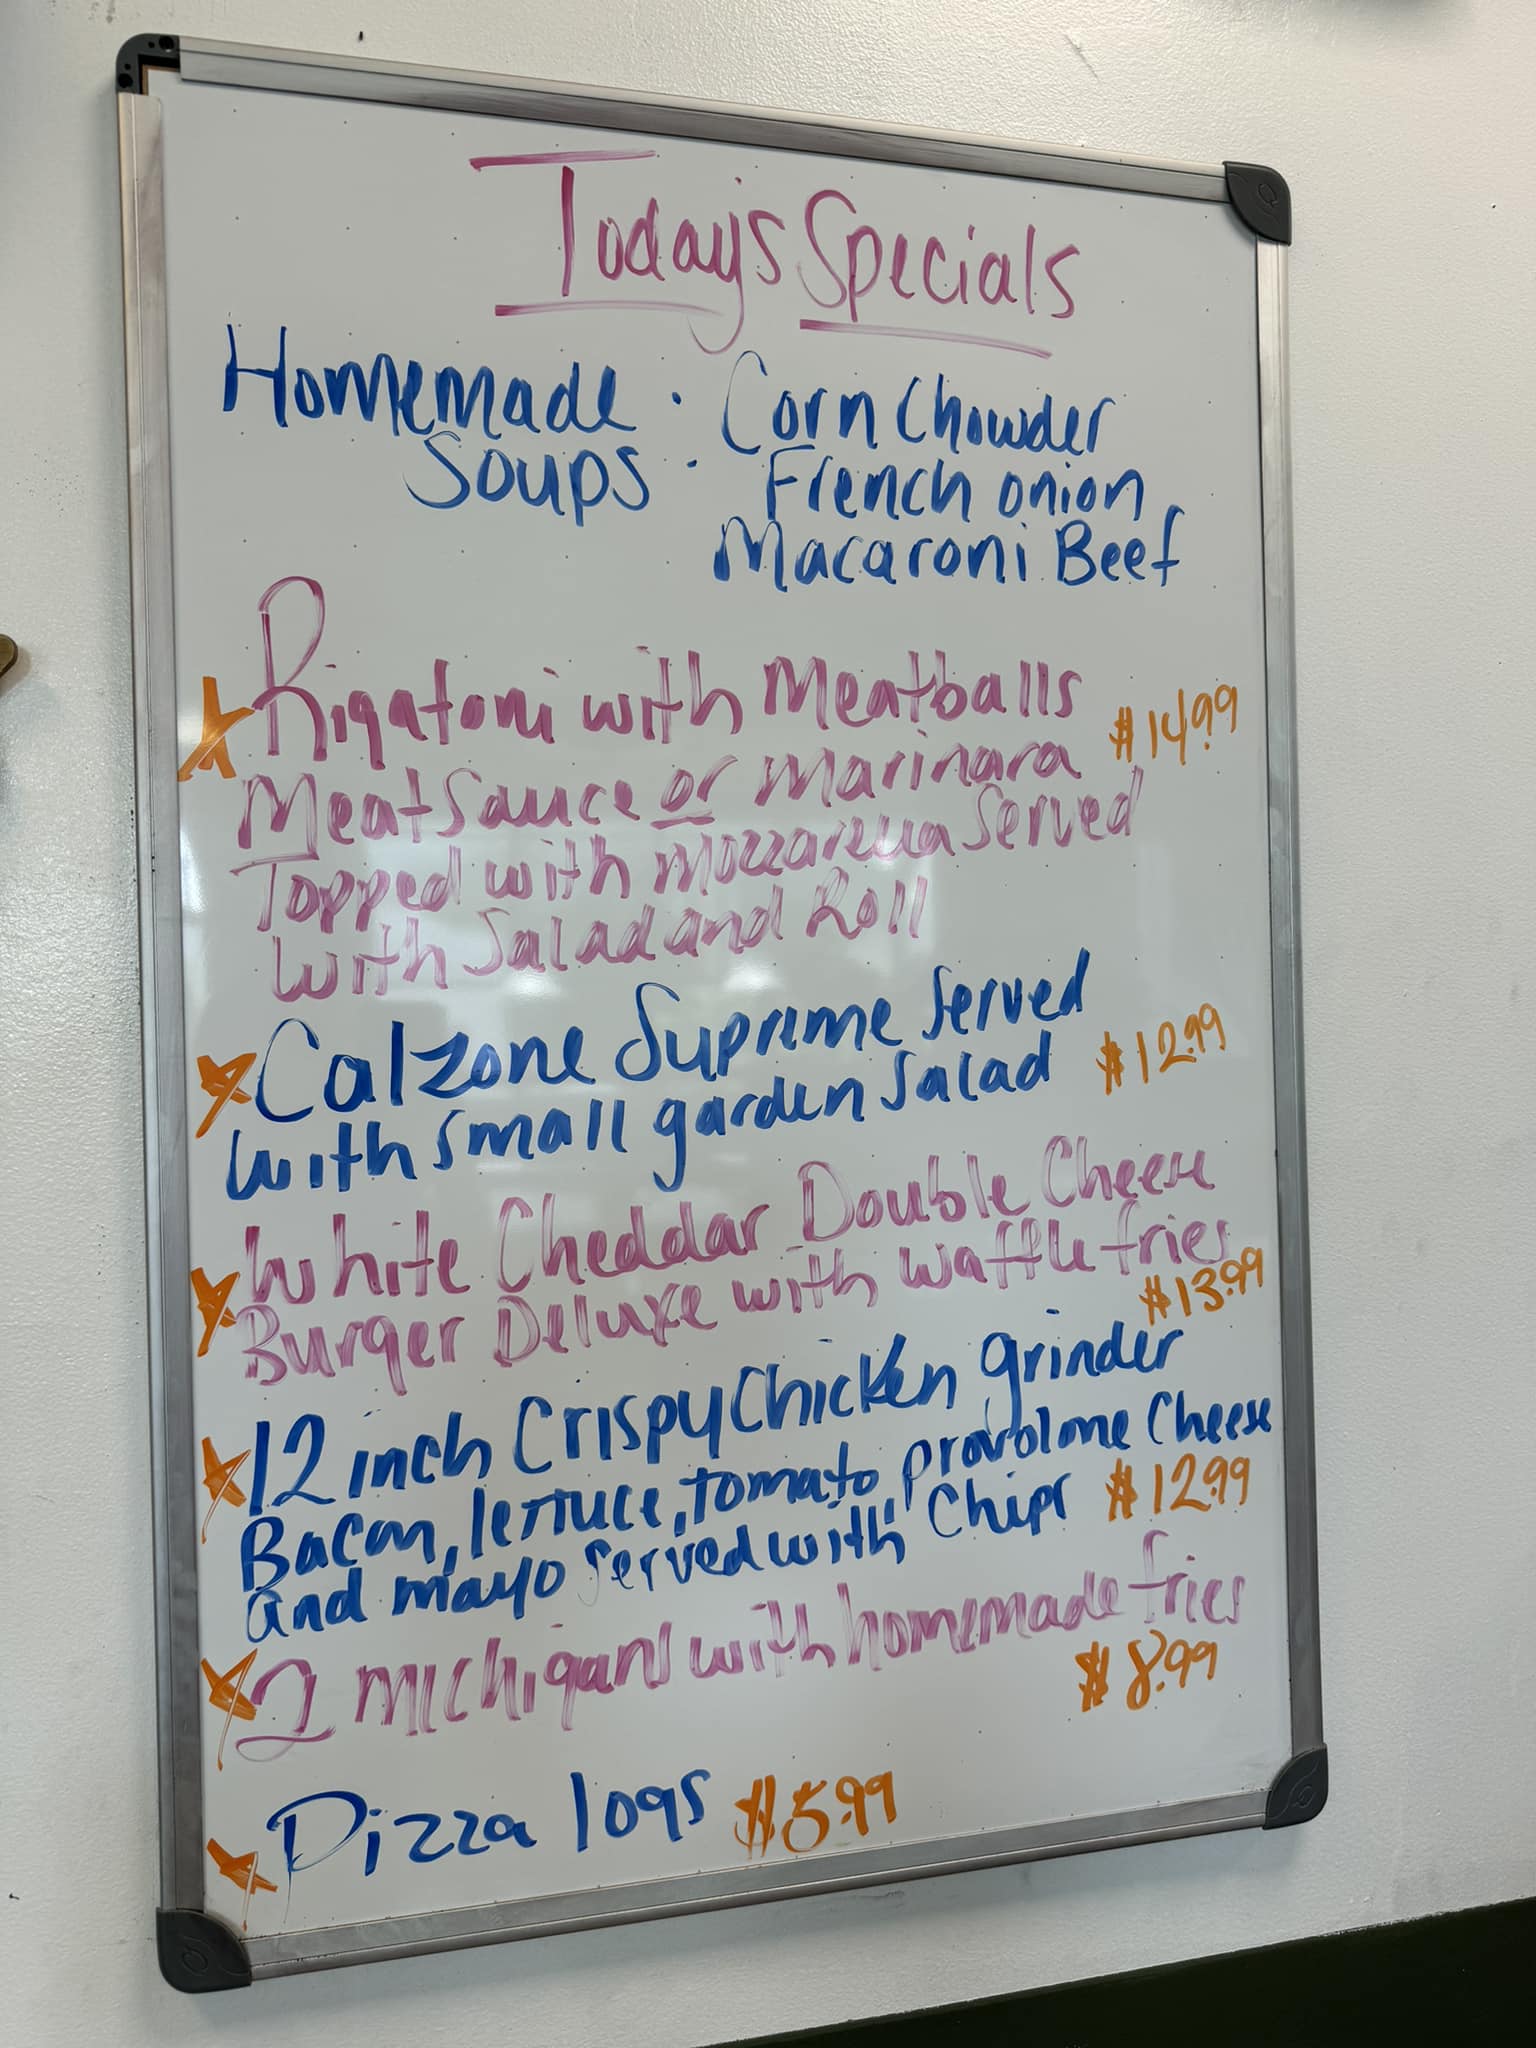 Today's Specials
Homemade : Corn Chowder
Soups : French onion
Macaroni Beef
Rigatoni with Meatballs $14.99
Meat Sauce or Marinara
Topped with Mozzarella Served
with Salad and Roll
Calzone Supreme Served
with small garden Salad $12.99
White Cheddar Double Cheese
Burger Deluxe with waffle fries
$13.99
12 inch Crispy Chicken grinder
Bacon, lettuce, tomato provolone Cheese
and mayo served with Chips $12.99
2 Michigans with homemade fries
$8.99
Pizza logs $5.99